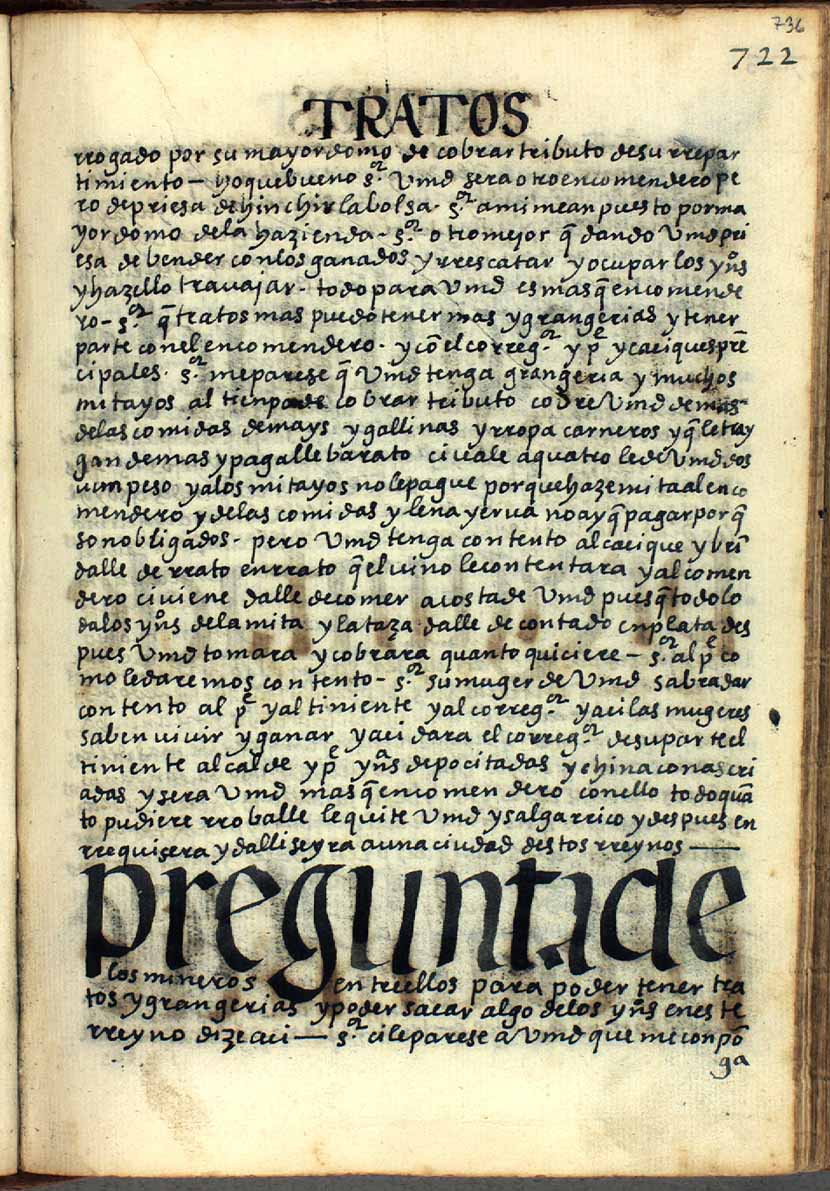 736
722
TRATOS
rrogado por su mayordomo de cobrar tributo de su rrepar
timiento – yo que bueno s.or Vmd sera otro encomendero pe
ro depriesa de hinchir la bolsa. s.or a mi mean puesto por ma
yordomo de la hazienda – s.or otro mejor q̃ dando Vmd pri
esa de bender con los ganados y rrescatar y ocupar los yn̊s
y hazello travajar – todo para Vmd es mas q̃ encomende
ro – s.or q̃ tratos mas puedo tener mas y grangerias y tener
parte con el encomendero. y cõ el correg.or y pe y caciques prẽ
cipales. s.or me parese q̃ Vmd tenga grangeria y muchos
mitayos al tienpo de cobrar tributo cobre Vmd demas
de las comidas de mays y gallinas y rropa carneros y q̃ le tray
gan demas y pagalle barato ci vale a quatro le de Vmd dos
u un peso y a los mitayos no le pague porque haze mita al enco
mendero y de las comidas y leña yerua no ay q̃ pagar por q̃
son obligados. pero Vmd tenga contento al cacique y brĩ
dalle de rrato en rrato q̃ el uino le contentara y al comen
dero ci uiene dalle de comer a costa de Vmd pues q̃ todo lo
da los yn̊s de la mita y la taza dalle de contado en plata des
pues Vmd tomara y cobrara quanto quiciere – s.or al pe co
mo le daremos contento – s.or su muger de Vmd sabra dar
contento al pe y al tiniente y al correg.or y aci las mugeres
saben uiuir y ganar y aci dara el correg.or de su parte el
tiniente alcalde y pe yn̊s depocitadas y chinaconas cri
adas y sera Vmd mas q̃ encomendero con ello todo quã
to pudiere rroballe le quite Vmd y salga rrico y despues en
rrequisera y dalli se yra a una ciudad destos rreynos —
Pregunta de
los mineros entre ellos para poder tener tra
tos y grangerias y poder sacar algo de los yn̊s en este
rreyno dize aci — s.or ci le parese a Vmd que me conpõ
ga